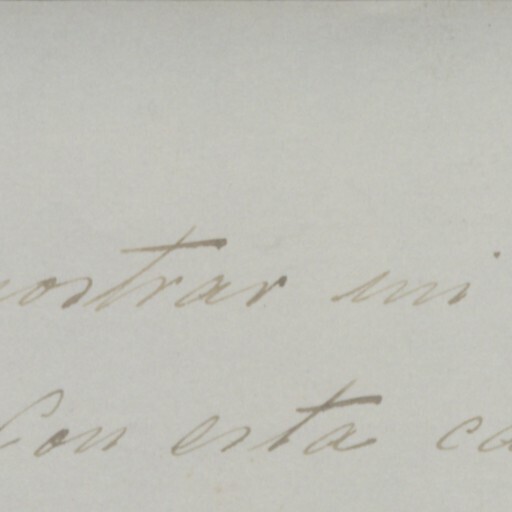 mostrar mi
Con esta ca